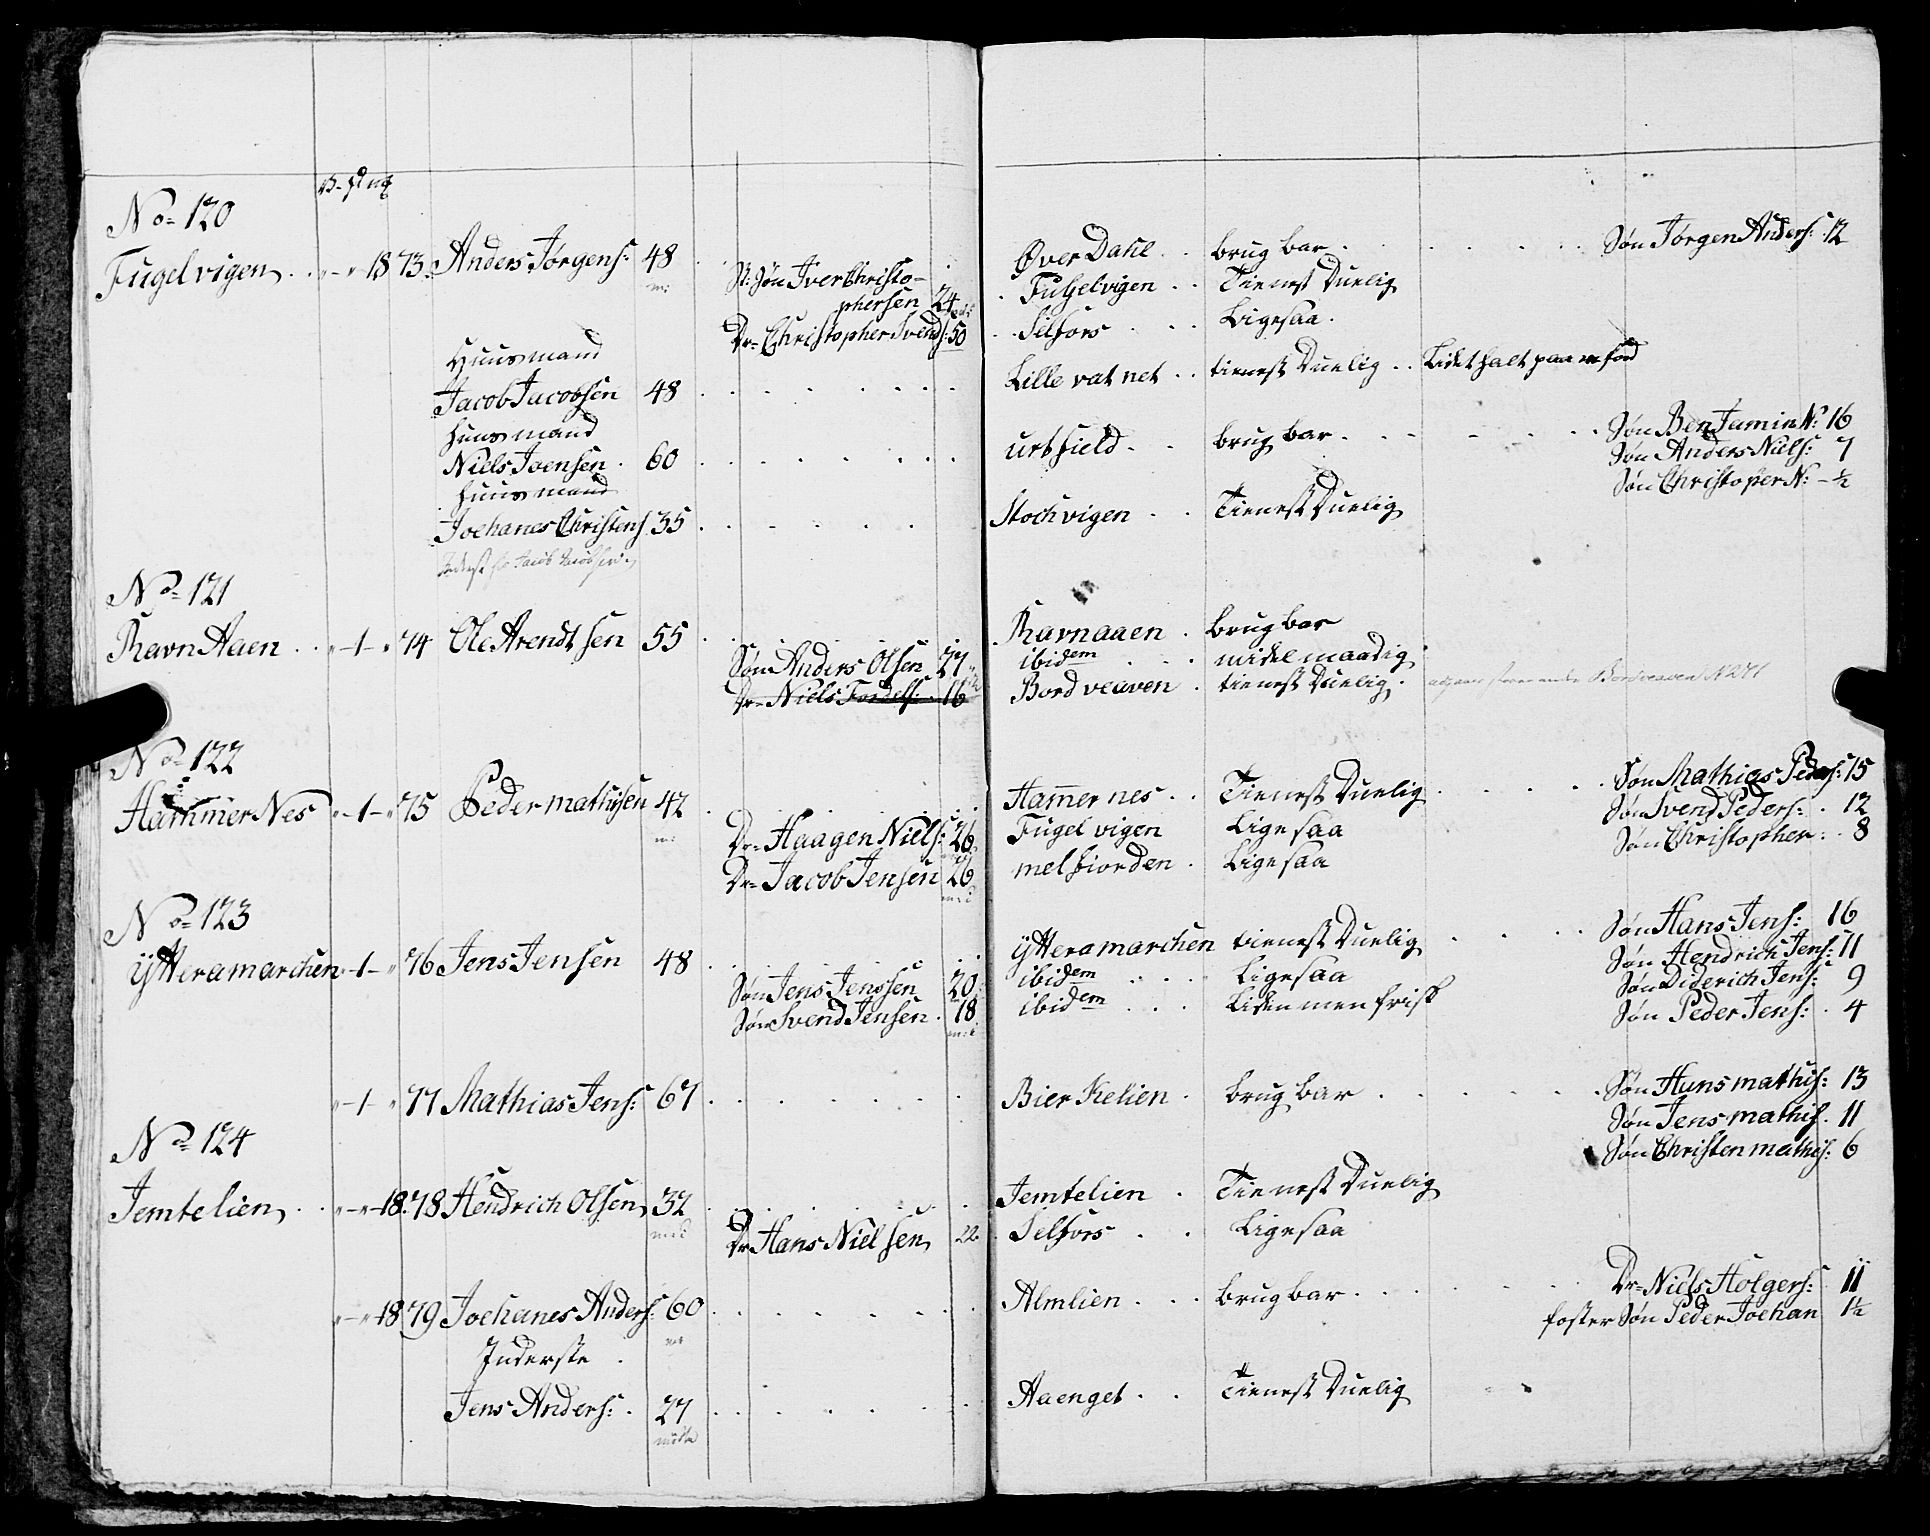 No= 120
Fugelvigen 18 73 Anders Jørgens: 48 Øver Dahl brugbar Søn Jørgen Anders: 12
St: Søn Iver Christo-
phersen 24 Fuhelvigen Tienest Duelig
Dr= Christopher Svends: 50 Selfors Ligesaa
Huusmand
Jacob Jacobsen 48 Lille vatnet tienest Duelig Lidet halt paa
Huusmand
Niels Joensen 60 urtfield brugbar Søn BenJamin N: 16
Søn Anders Niels: 7
Søn Christoper N: ½
Huusmand
Joehanes Christens 35 Stochvigen Tienest Duelig
No= 121
Ravn Aaen 1 74 Ole Arendtsen 55 Ravnaaen brugbar
Søn Anders Olsen 27 ibidem midelmaadig
Dr= Niels 16 Bordveaven tienest Duelig Bordveaven N 271
No= 122
Hammer Nes 1 75 Peder mathisen 42 Hammernes Tienest Duelig Søn Mathias Peders: 15
Dr= Haagen Niels: 26 Fugelvigen Ligesaa Søn Svend Peders: 12
Dr= Jacob Jensen 26 melfiorden Ligesaa Søn Christopher: 8
No= 123
Ytteramarchen 1 76 Jens Jensen 48 Ytteramarchen tienest Duelig Søn Hans Jens: 16
Søn Hendrich Jens: 11
Søn Jens Jenssen 20 ibidem Ligesaa Søn Diderich Jens: 9
Søn Svend Jensen 18 ibidem Liden men frisk Søn Peder Jens: 4
1 77 Mathias Jens: 67 Bierkelien brugbar Søn Hans mathis: 13
Søn Jens mathis. 11
Søn Christen mathis: 6
No= 124
Jemtelien 18 78 Hendrich Olsen 32 Jemtelien Tienest Duelig
Dr Hans Nielsen 22 Selfors Ligesaa
18 79 Joehanes Anders: 60 Almlien brugbar Dr= Niels Holgers: 11
foster Søn Peder Joehan 1½
Inderste
Jens Anders: 27 Aaenget Tienest Duelig